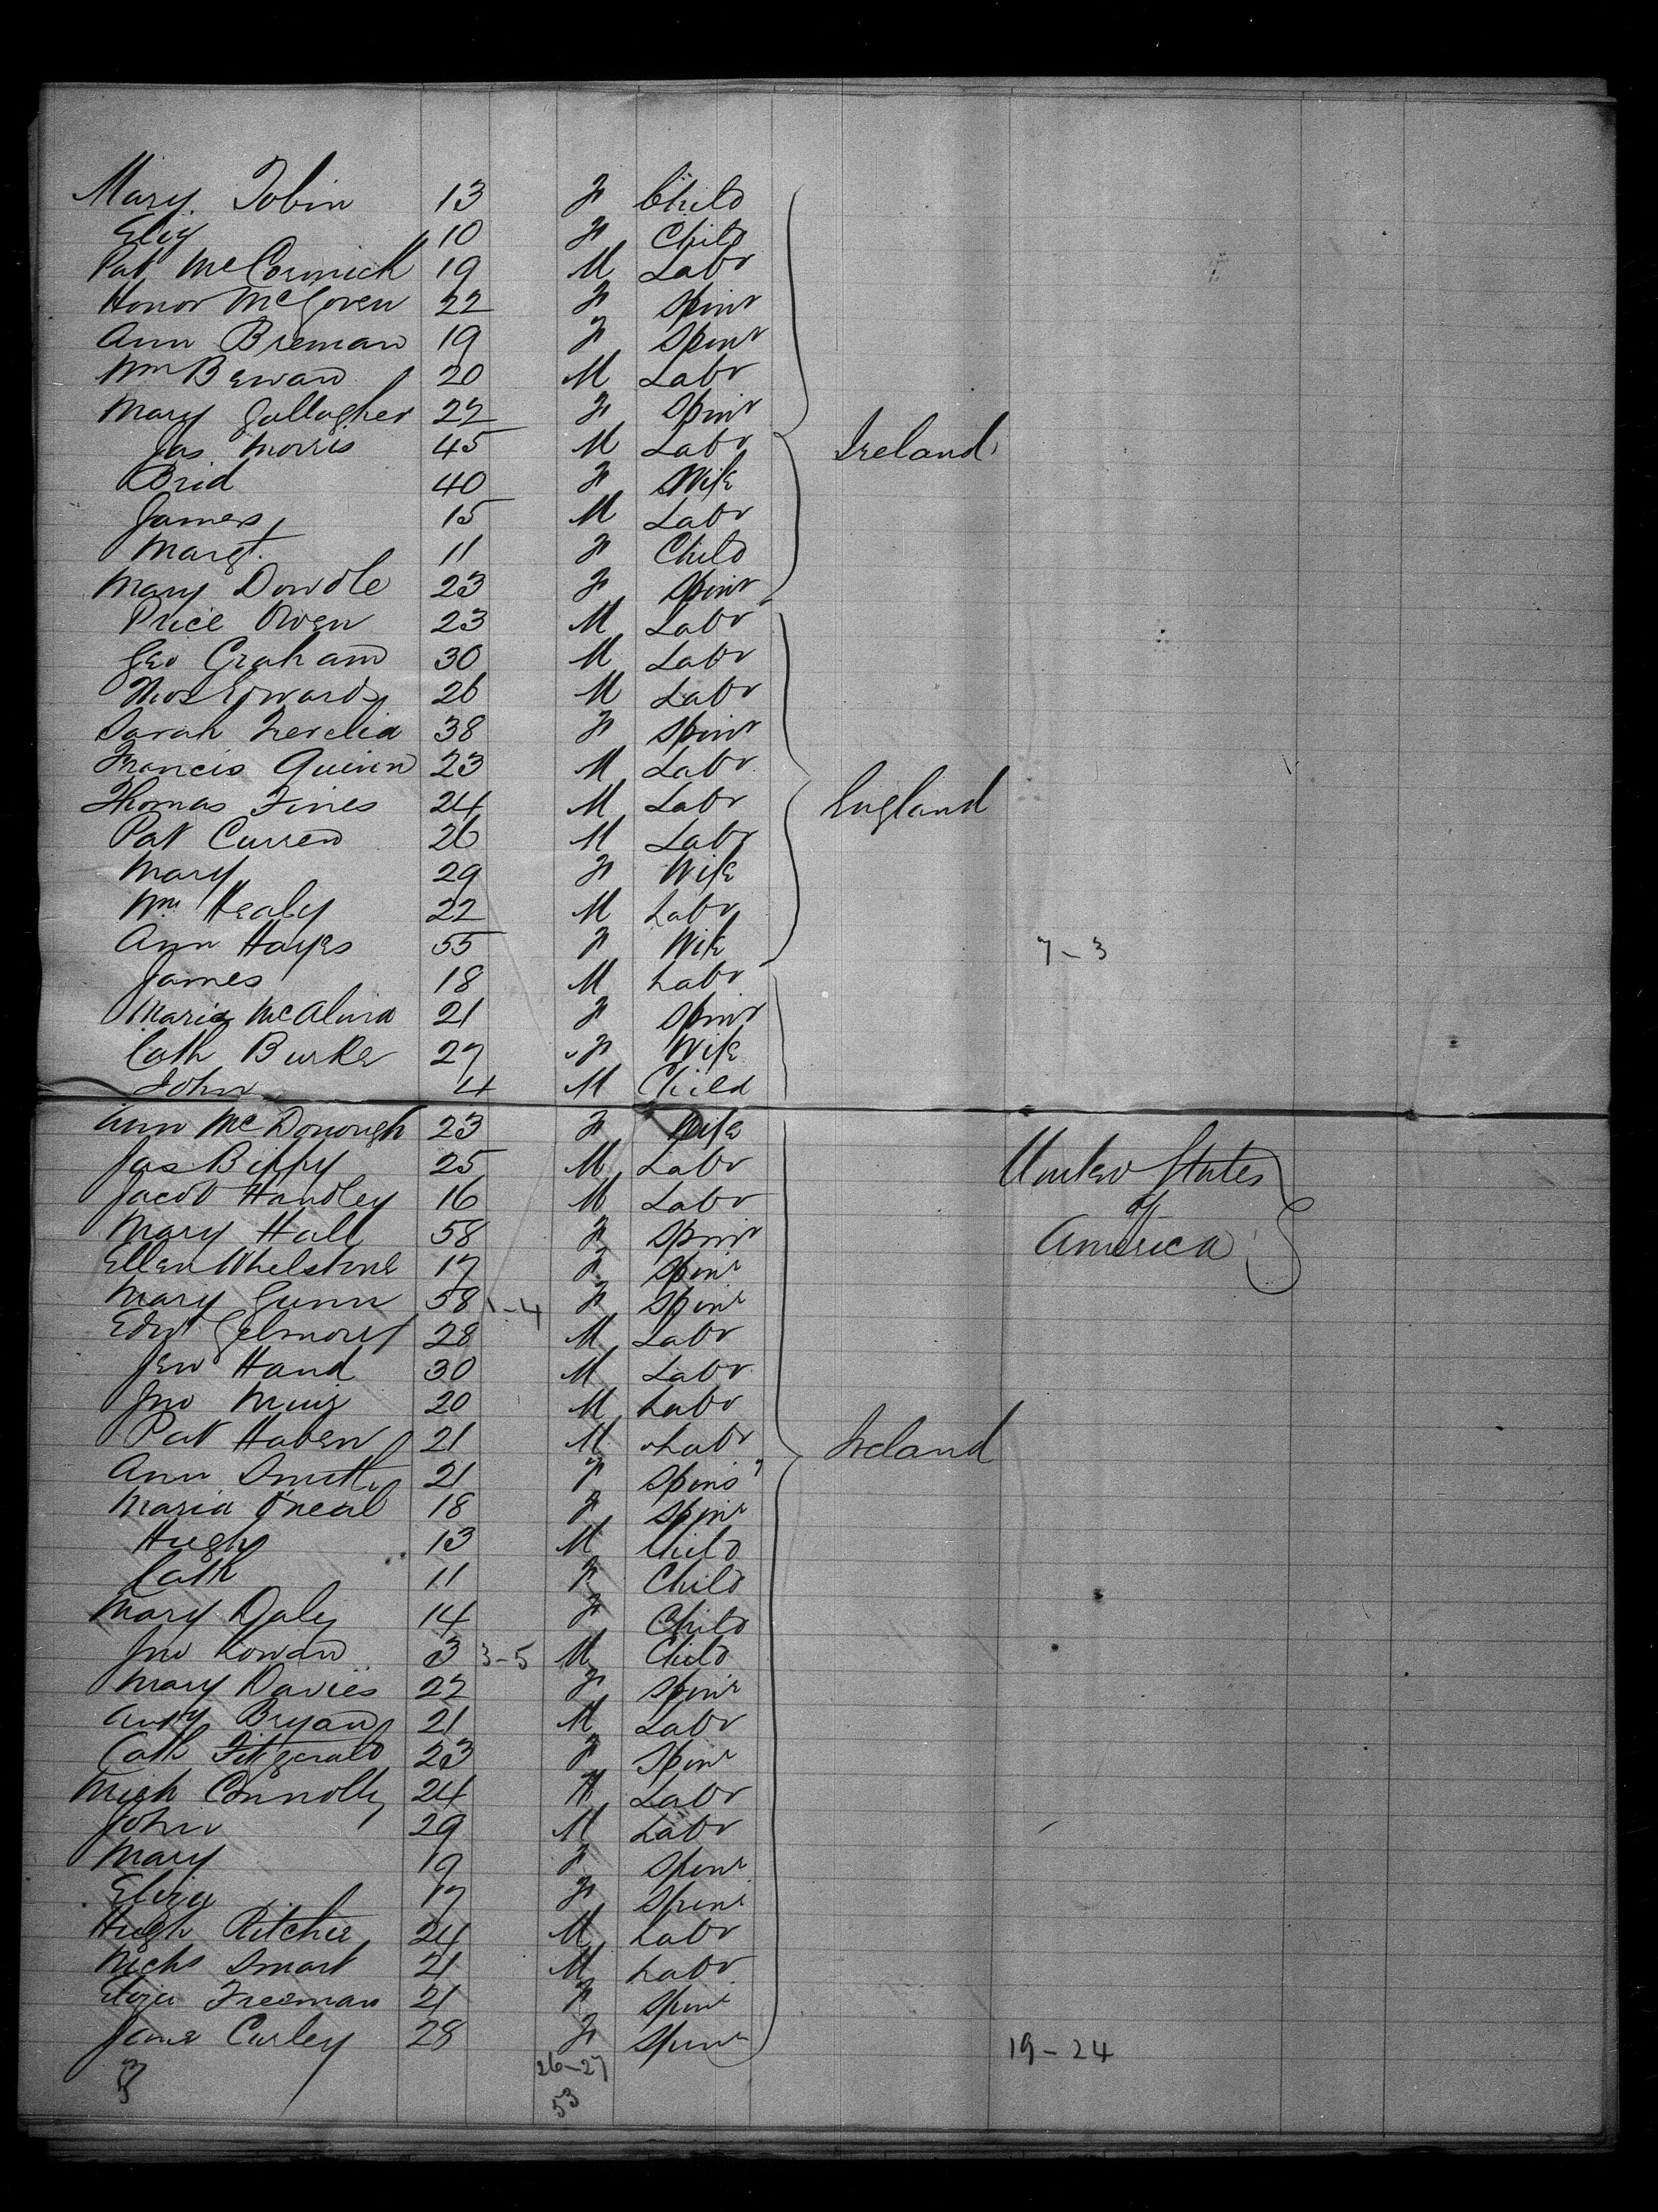 Mary Tobin 13 F Child
Eliz 10 F Child
Pat McCormick 19 M Labr
Honor McGoven 22 F Spinr
Ann Breman 19 F Spinr
Wm 20 M Labr
Mary Gallagher 22 F Spinr
Jas Morris 45 M Labr Ireland
Brid 40 F Wife
James 15 M Labr
Margt. 11 F Child
Mary Dowdle 23 F Spinr
Price Owen 23 M Labr
Geo Graham 30 M Labr
Thos Edwards 26 M Labr
Sarah 38 F Spinr
Francis Quinn 23 M Labr
Thomas Fines 24 M Labr England
Pat Curren 26 M Labr
Mary 29 F Wife
Wm Healy 22 M Labr
Ann Hayes 55 F Wife 7-3
James 18 M Labr
Maria 21 F Spinr
Cath Burke 27 F Wife
John 4 M Child
Ann McDonough 23 F Wife
Jas 25 M Labr United States
Jacob Handley 16 M Labr of
Mary Hall 58 F Spinr America
Ellen Whelstone 17 F Spinr
Mary Gunn 58 1-4 F Spinr
Edwd Gelmour 28 M Labr
Hand 30 M Labr
Jno Muir 20 M Labr
Pat Haben 21 M Labr Ireland
Ann Smith 21 F Spins
Maria O'Neal 18 F Spinr
Hugh 13 M Child
Cath 11 F Child
Mary Daly 14 F Child
Jno Cowan 3 3-5 M Child
Mary Davies 22 F Spinr
Andy Bryan 21 M Labr
Cath Fitzgerald 23 F Spinr
Mich Connolly 24 M Labr
John 29 M Labr
Mary 19 F Spinr
Eliza 17 F Spinr
Hugh Ritchie 24 M Labr
Nichs Smart 21 M Labr
Eliza Freeman 21 F Spinr
Jane Curley 28 F Spinr 19-24
26-27
53